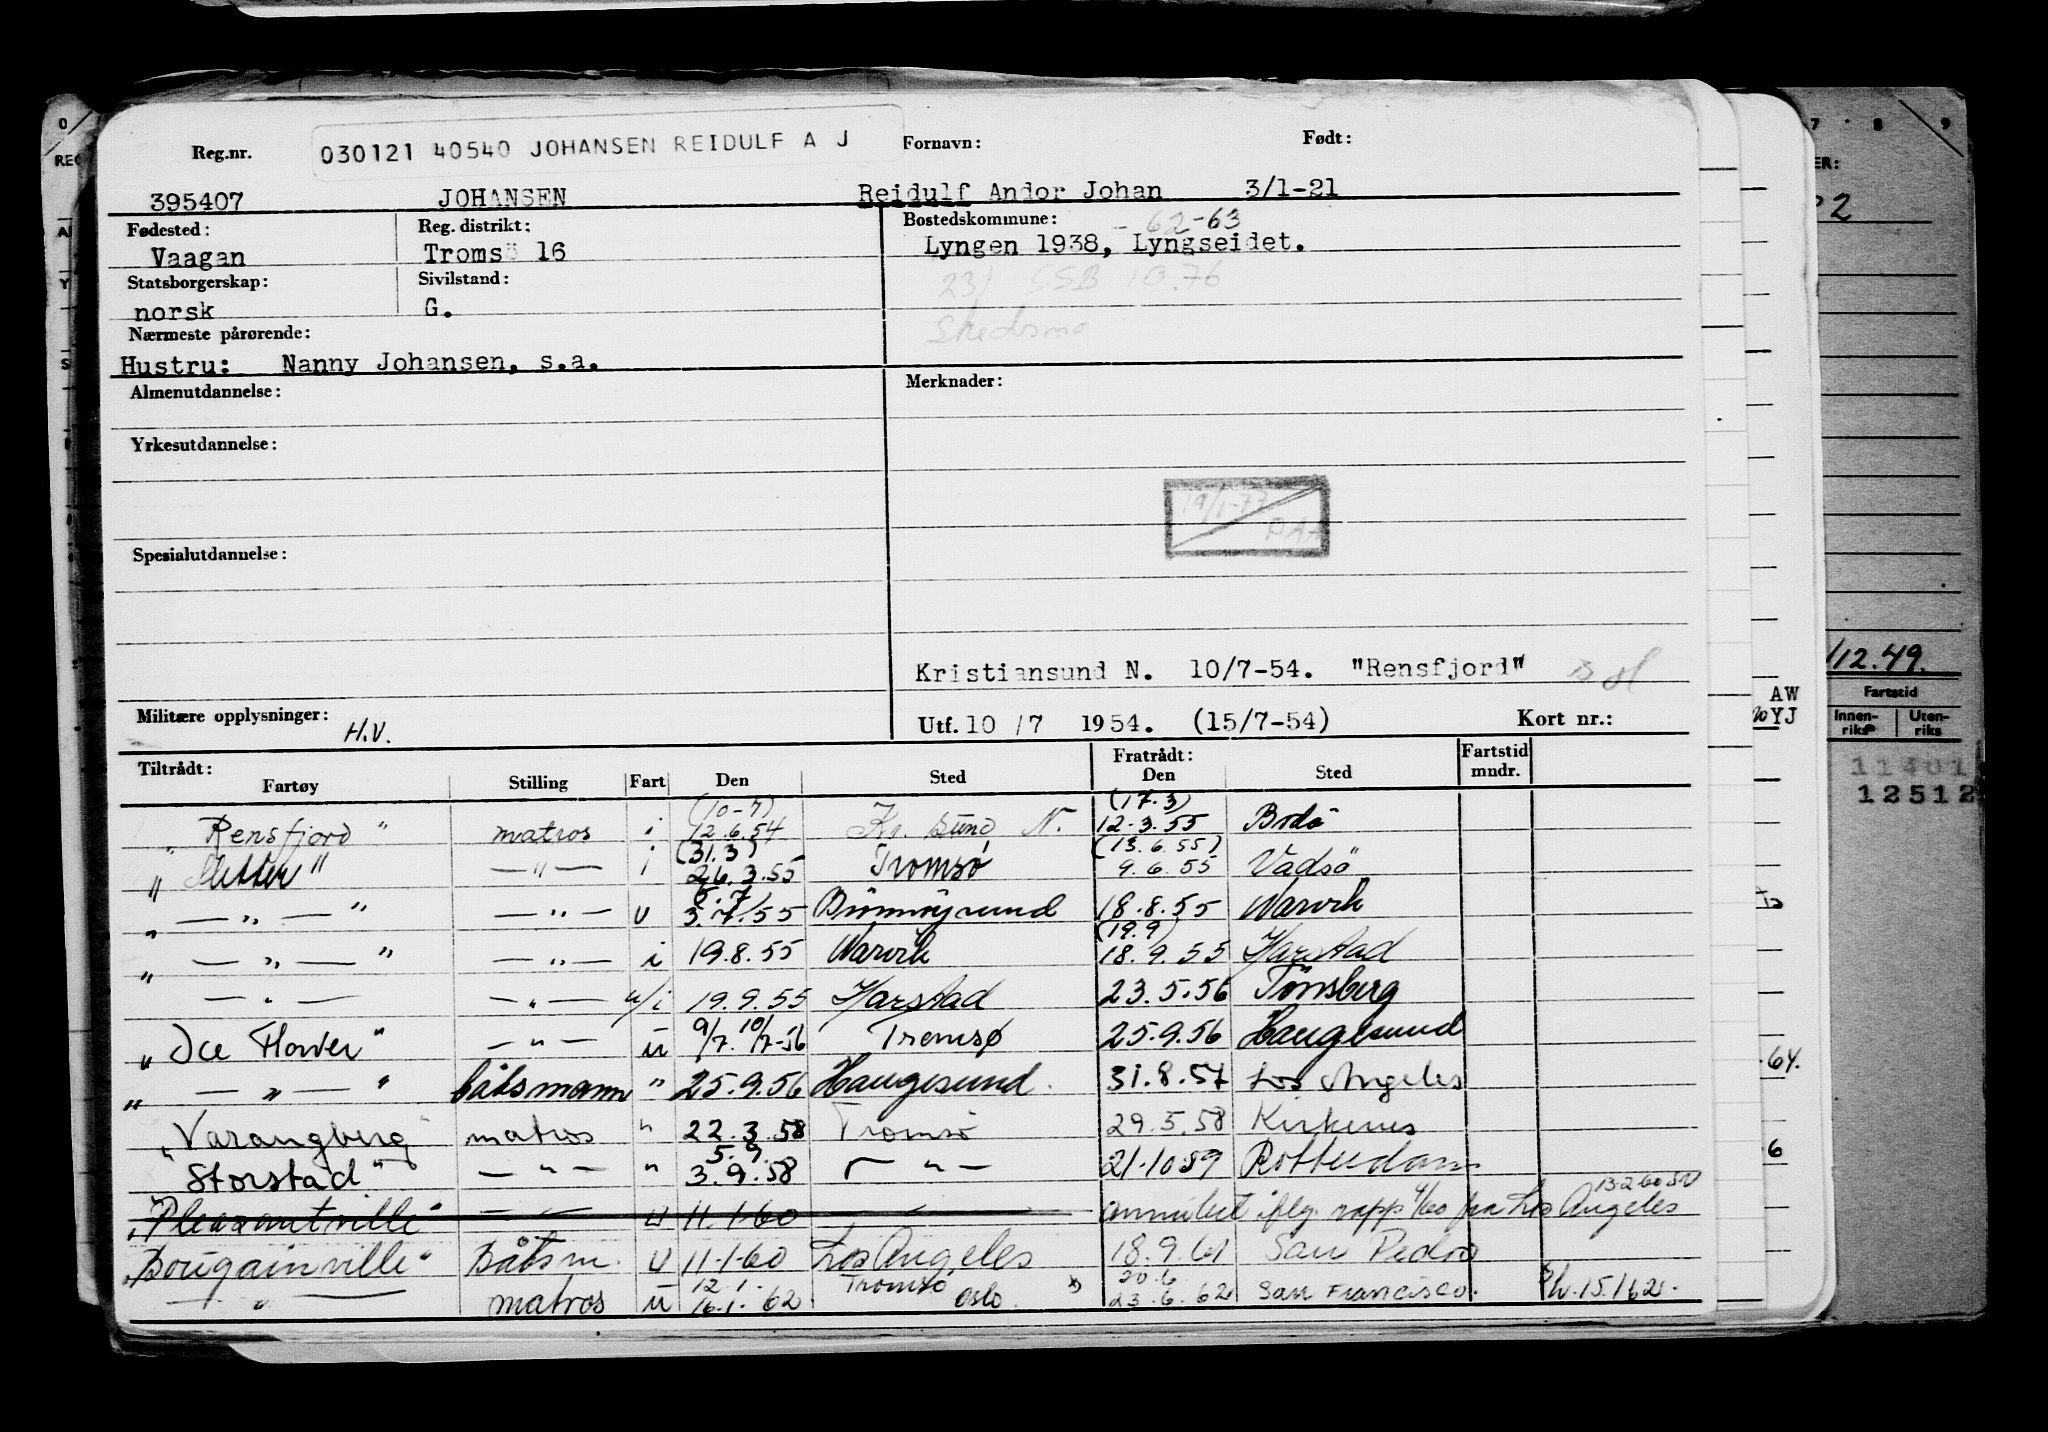 Reg.nr. 030121 40540 JOHANSEN REIDULF A J Fornavn: Født:
395407 JOHANSEN Reidulf Andor Johan 3/1-21
Fødested: Reg. distrikt: Bostedskommune: - 62-63
Vaagan Tromsö 16 Lyngen 1938, Lyngseidet.
Statsborgerskap: Sivilstand: 23/ SSB 10.76
norsk G.
Skedsmo
Nærmeste pårørende:
Hustru: Nanny Johansen, s.a.
Almenutdannelse: Merknader:
Yrkesutdannelse:
19/1-77
Spesialutdannelse:
Kristiansund N. 10/7-54. "Rensfjord"
Militære opplysninger: H.V. Utf. 10/7 1954. (15/7-54) Kort nr.:
Tiltrådt: Fratrådt: Fartstid
Fartøy Stilling Fart Den Sted Den Sted mndr.
(10-7) (17.3)
"Rensfjord" matros i 12.6.54 Kr. sund N. 12.3.55 Bodö
(31.3) (13.6.55)
" — " — i 26.3.55 Tromsø 9.6.55 Vadsö
5.7
" — " — " — " — u 3.7.55 Brönnöysund 18.8.55 Narvik
(19.9)
" — " — " — " — i 19.8.55 Narvik 18.9.55 Harstad
— " — — " — u/i 19.9.55 Harstad 23.5.56 Tönsberg
"Ice Flower" — " — u 9/7. 10/7-56 Tromsø 25.9.56 Haugesund
" — " — " båtsmann " 25.9.56 Haugesund. 31.8.57 Los Angeles
"Varangberg matros " 22.3.58 Tromsö 29.5.58 Kirkenes
5.9.
Storstad" — " — " 3.9.58 — " — 21.10.59 Rotterdam
13.2.60
"Pleasantville" — " — u 11.1.60 — " — annulert iflg. rapp 4/60 fra Los Angeles
"Bougainville" Båtsm. u 11-1-60 Los Angeles 18.9.61 San Pedro
12.1. Tromsö 20.6
— " — matros u 16.1.62 Oslo. x) 23.6.62 San Francisco. 15.1.62.
12.49.
Fartstid
Innen-riks Uten-riks
11401
12512
AW
YJ
64.
6